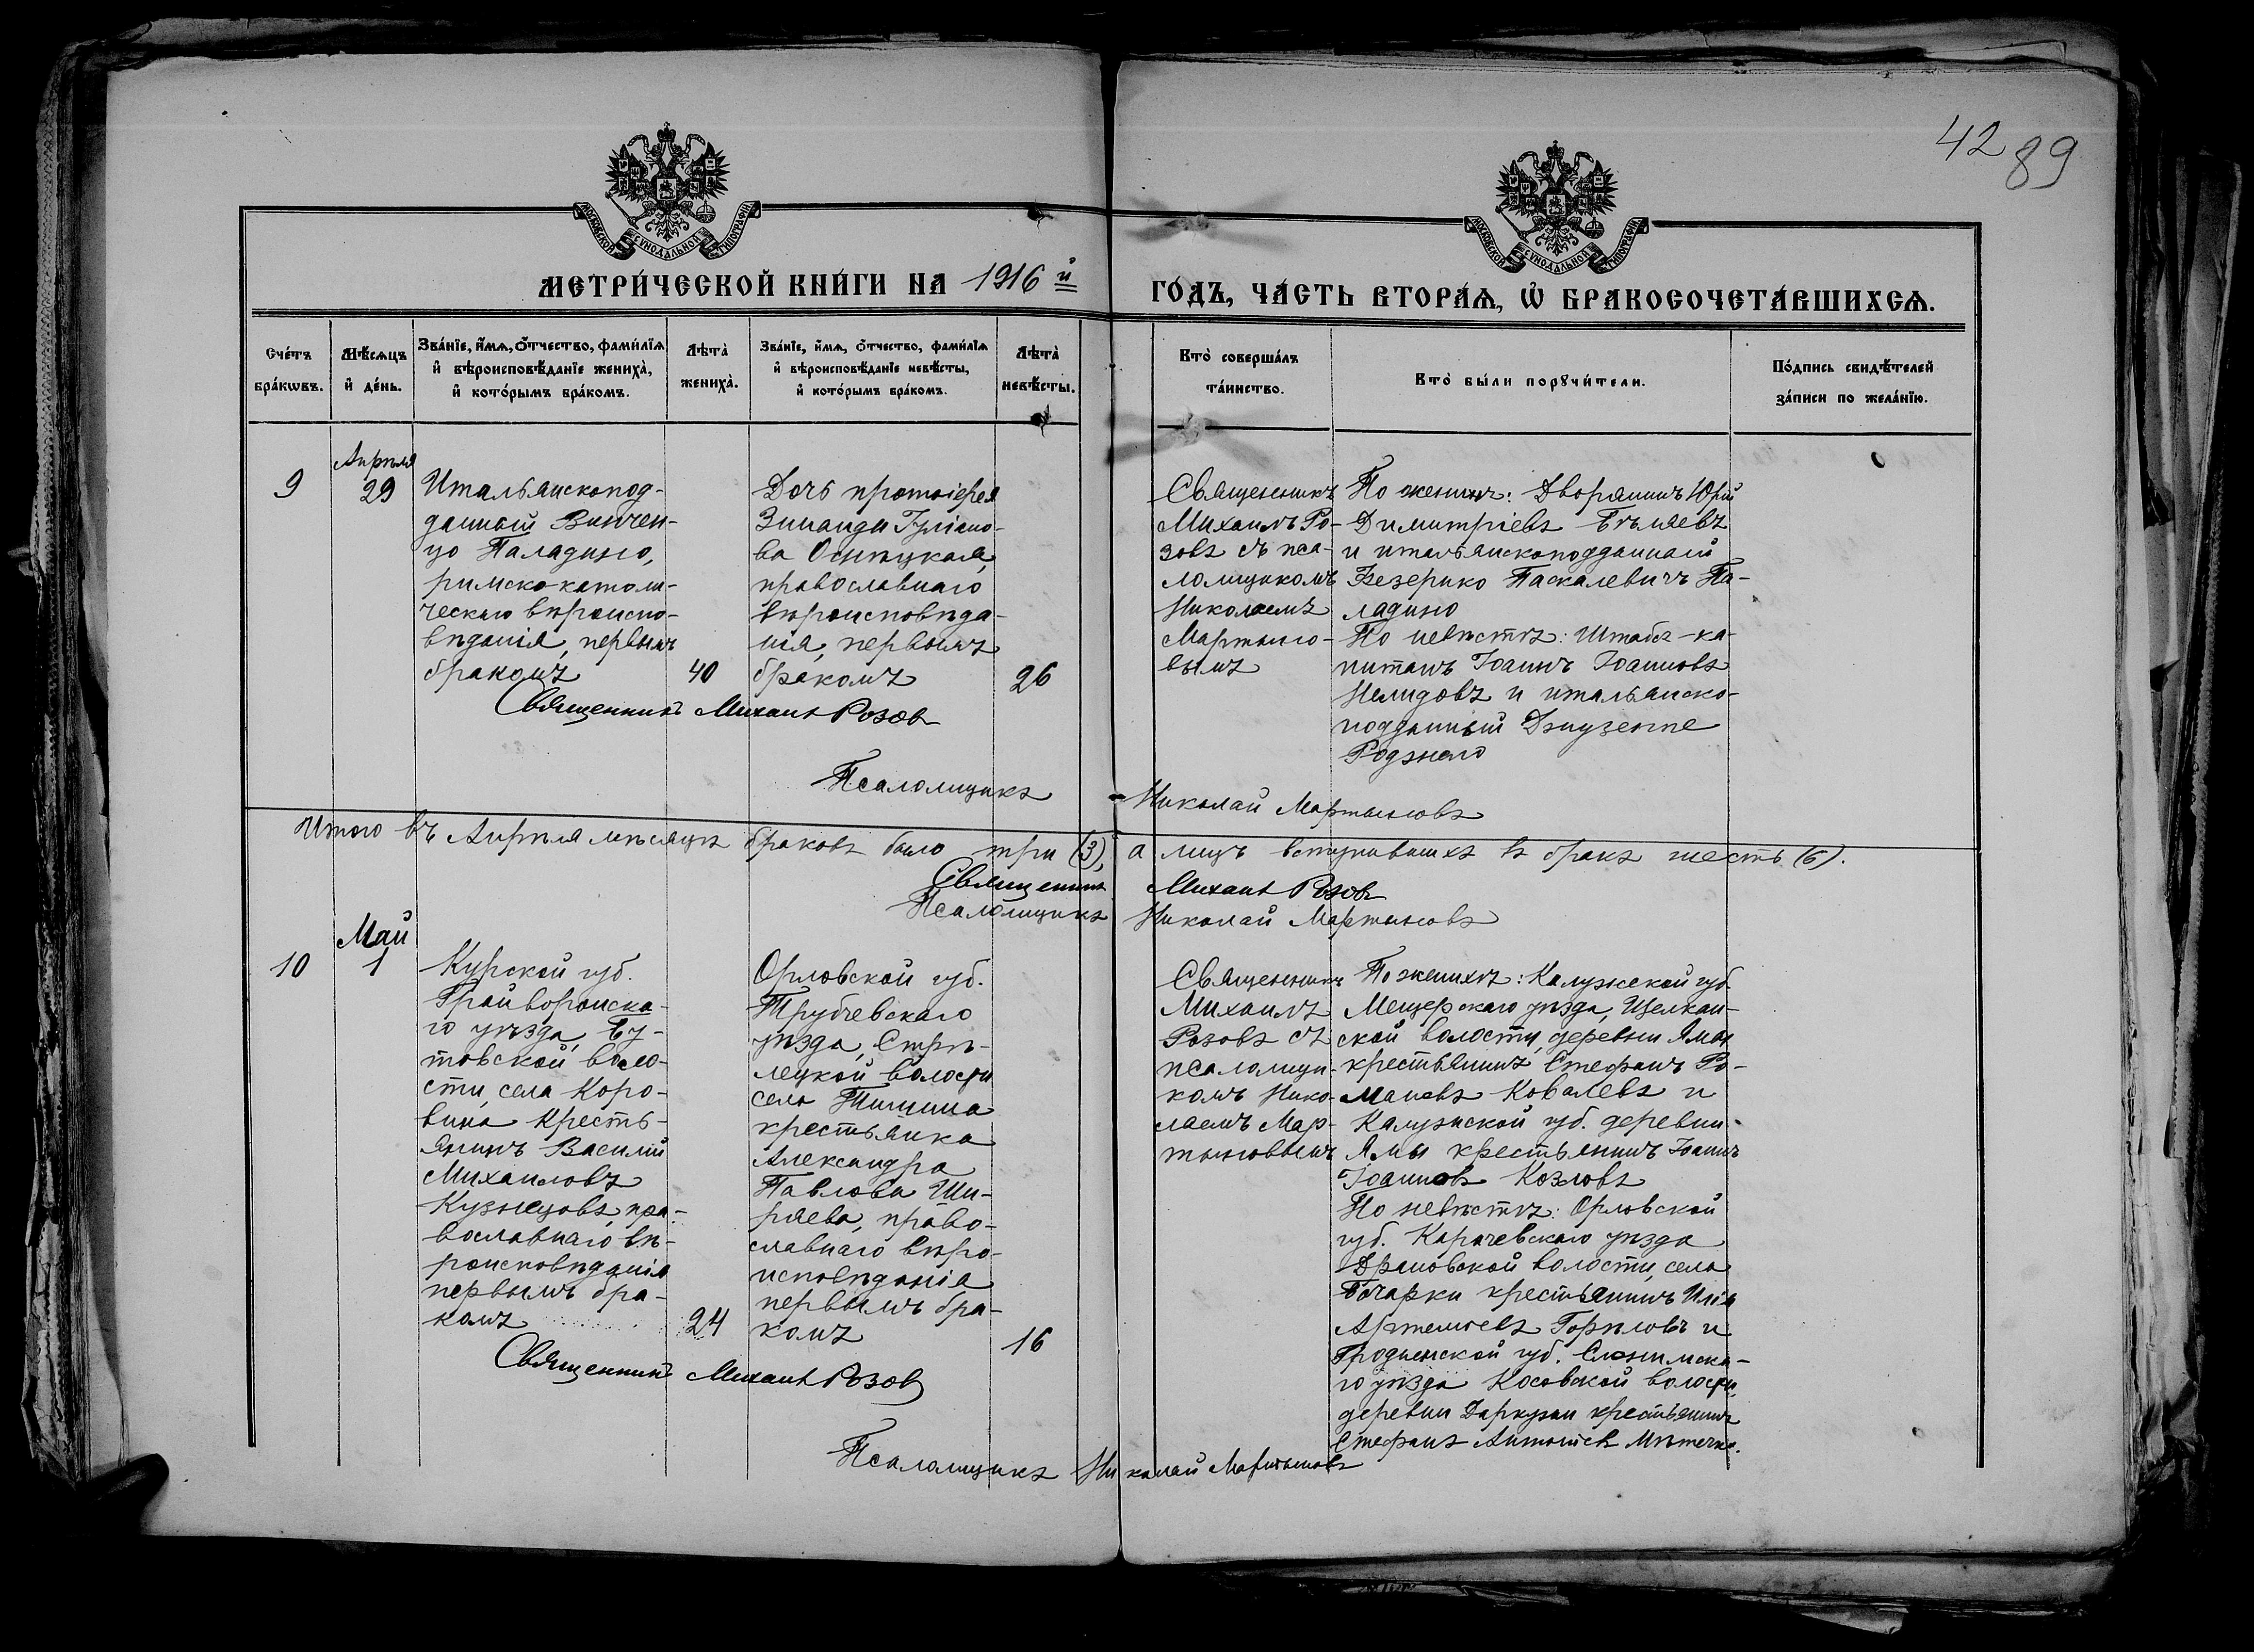 42 89
МОСКОВСКОЙ СѴНОДАЛЬНОЙ ТИПОГРАФІИ
МОСКОВСКОЙ СѴНОДАЛЬНОЙ ТИПОГРАФІИ
МЕТРИ́ЧЕСКОЙ КНИ́ГИ НА 1916 й
ГО́ДЪ, ЧА́СТЬ ВТОРА́Ѧ, Ѡ҆ БРАКОСОЧЕТА́ВШИХСѦ.
Сче́тъ
бра́кѡвъ.
Мѣ́сѧцъ
и҆ де́нь.
Зва́нїе, и҆́мѧ, ѻ҆́тчество, фами́лїѧ
и҆ вѣроисповѣ́данїе жениха̀,
и҆ кото́рымъ бра́комъ.
Лѣта̀
жениха̀.
Зва́нїе, и҆́мѧ, ѻ҆́тчество, фами́лїѧ
и҆ вѣроисповѣ́данїе невѣ́сты,
и҆ кото́рымъ бра́комъ.
Лѣта̀
невѣ́сты.
Кто̀ соверша́лъ
та́инство.
Кто̀ бы́ли порꙋчи́тели.
По́дпись свидѣ́телей
за́писи по жела́нїю.
9
Апрѣля
29
Итальянскопод-
данный Винчен-
цо Паладино,
римско-католи-
ческаго вѣроиспо-
вѣданія, первымъ
бракомъ
40
Дочь протоіерея
Зинаида Іуліано-
ва
православнаго
вѣроисповѣда-
нія, первымъ
бракомъ
26
Священникъ
Михаилъ Ро-
зовъ съ пса-
ломщикомъ
Николаемъ
Мартыно-
вымъ
По женихѣ: Дворянинъ Юрій
Димитріевъ Бѣляевъ
и итальянскоподданный
Федерико Паскалевичъ Па-
ладино
По невѣстѣ: Штабсъ-ка-
питанъ Іоаннъ Іоанновъ
Нелидовъ и итальянско-
подданный Джузеппе
Роджеро
Священникъ Михаилъ Розовъ
Псаломщикъ Николай Мартыновъ
Итого въ Апрѣля мѣсяцѣ браковъ было три (3), а лицъ вступившихъ въ бракъ шесть (6).
Священникъ Михаилъ Розовъ
Псаломщикъ Николай Мартыновъ
10
Май
1
Курской губ.
Грайворонска-
го уѣзда, Бу-
товской воло-
сти, села Коро-
вина крестья-
янинъ Василій
Михаиловъ
Кузнецовъ, пра-
вославнаго вѣ-
роисповѣданія
первымъ бра-
комъ
24
Орловской губ.
Трубчевскаго
уѣзда, Стрѣ-
лецкой волости
села
крестьянка
Александра
Павлова Ши-
ряева, право-
славнаго вѣро-
исповѣданія
первымъ бра-
комъ
16
Священникъ
Михаилъ
Розовъ съ
псаломщи-
комъ Нико-
лаемъ Мар-
тыновымъ
По женихѣ: Калужской губ.
Мещерскаго уѣзда, Щелкан-
ской волости, деревни Ямы
крестьянинъ Стефанъ Ро-
мановъ Ковалевъ и
Калужской губ. деревни
Ямы крестьянинъ Іоаннъ
Іоанновъ Козловъ
По невѣстѣ: Орловской
губ. Карачевскаго уѣзда
Драновской волости, села
Бочарки крестьянинъ Илія
Артемьевъ Горѣловъ и
Гродненской губ. Слонимска-
го уѣзда Косовской волости,
деревни крестьянинъ
Стефанъ
Священникъ Михаилъ Розовъ
Псаломщикъ Николай Мартыновъ